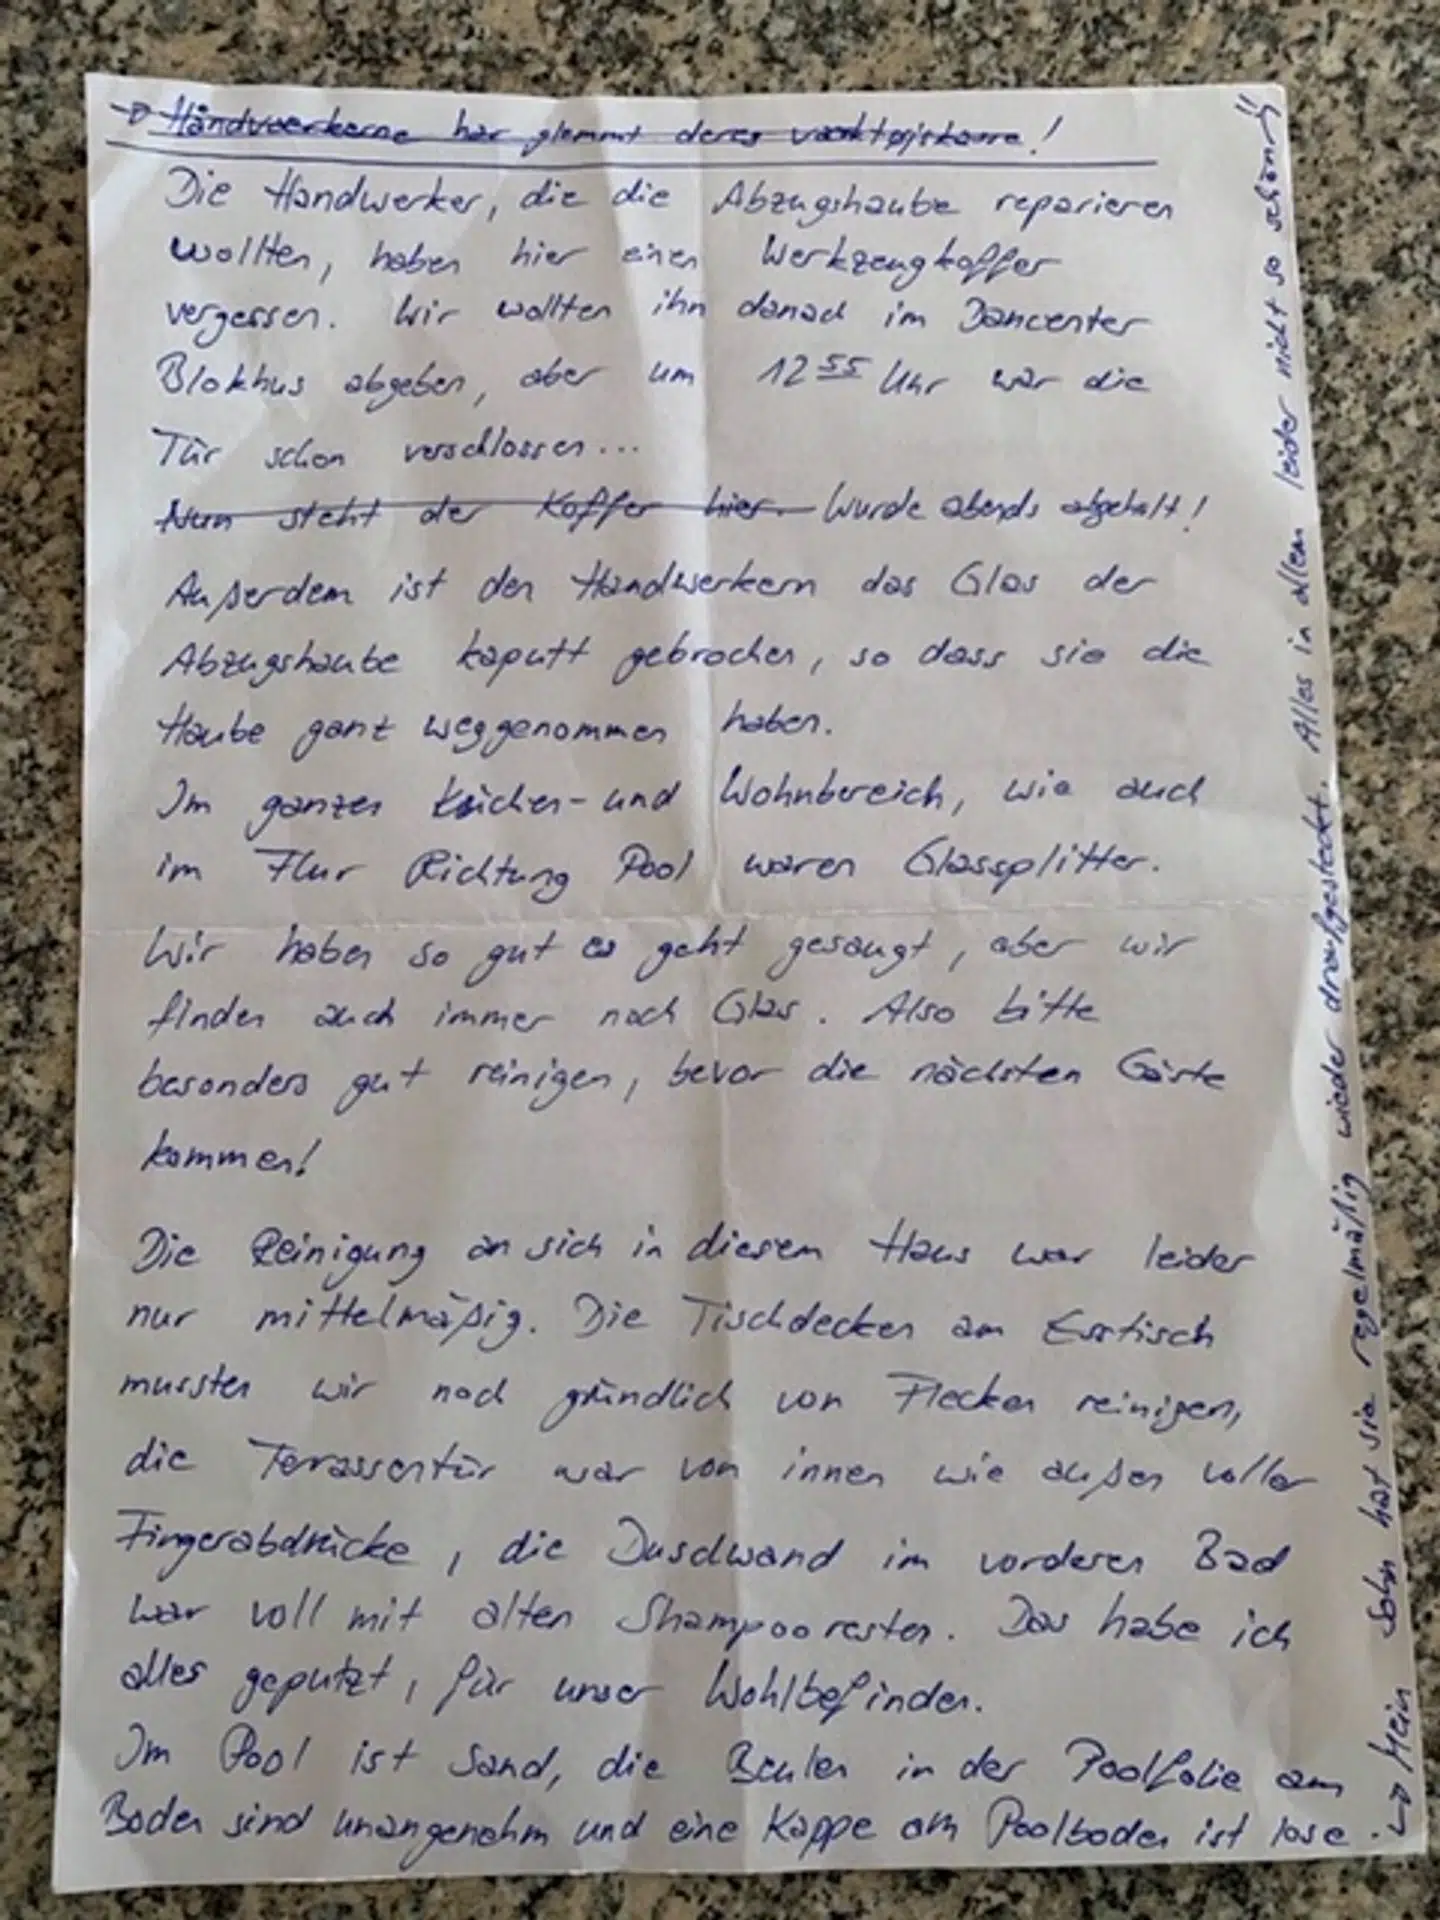 → Håndvoerkerne har glemmt deres værktøjskarre!
Die Handwerker, die die Abzugshaube reparieren
wollten, haben hier einen Werkzeugkoffer
vergessen. Wir wollten ihn danach im Dancenter
Blokhus abgeben, aber um 12 55 Uhr war die
Tür schon verschlossen...
Nun steht der Koffer hier. Wurde abends abgeholt!
Außerdem ist den Handwerkern das Glas der
Abzugshaube kaputt gebrochen, so dass sie die
Haube ganz weggenommen haben.
Im ganzen Küchen- und Wohnbereich, wie auch
im Flur Richtung Pool waren Glassplitter.
Wir haben so gut es geht gesaugt, aber wir
finden auch immer noch Glas. Also bitte
besonders gut reinigen, bevor die nächsten Gäste
kommen!
Die Reinigung an sich in diesem Haus war leider
nur mittelmäßig. Die Tischdecken am Esstisch
mussten wir noch gründlich von Flecken reinigen,
die Terassentür war von innen wie außen voller
Fingerabdrücke, die Duschwand im vorderen Bad
war voll mit alten Shampooresten. Das habe ich
alles geputzt, für unser Wohlbefinden.
Im Pool ist Sand, die Beulen in der Poolfolie am
Boden sind unangenehm und eine Kappe am Poolboden ist lose.
→ Mein Sohn hat sie regelmäßig wieder draufgesteckt. Alles in allem leider nicht so schön!!